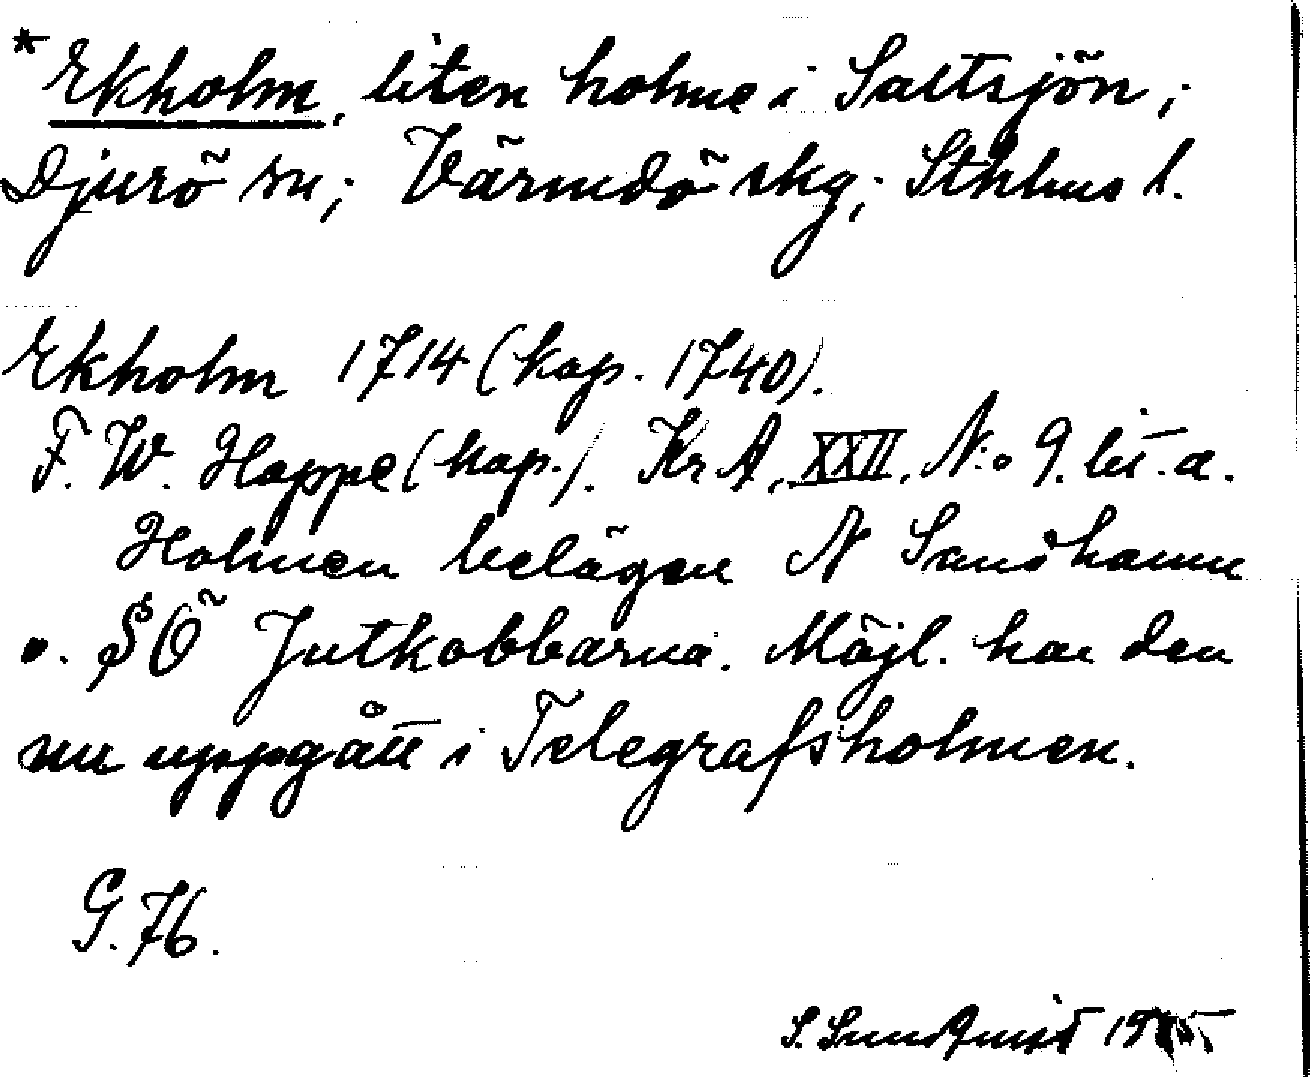 * Ekholm, liten holme i Saltsjön,;
Djurö sn,; Värmdö skg,; Sthlms l.
Ekholm 1714 (kop. 1740).
F. W. Hoppe (kop.). Kr A, XXII, N:o 9. lit. a.
Holmen belägen N Sandhamn
o. SÖ Jutkobbarna. Möjl. har den
nu uppgått i Telegrafsholmen.
G. 76.
S. Sundqvist